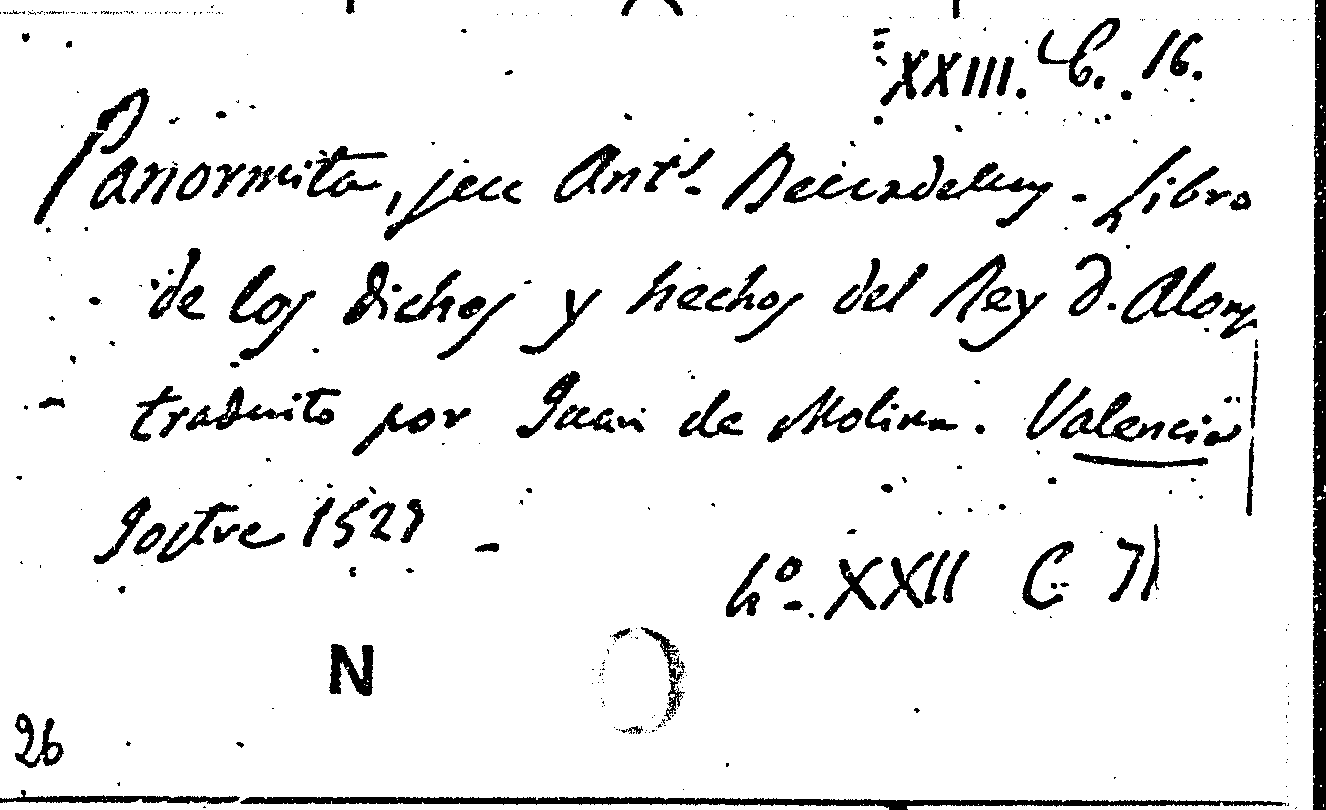 XXIII. E. 16.
Panormita, seu Ant.s Beccadelus - Libro
de los dichos y hechos del Rey D. Alon
traduito por Juan de Molina. Valencia
Jostre 1529 -
4º. XXII C
N
26